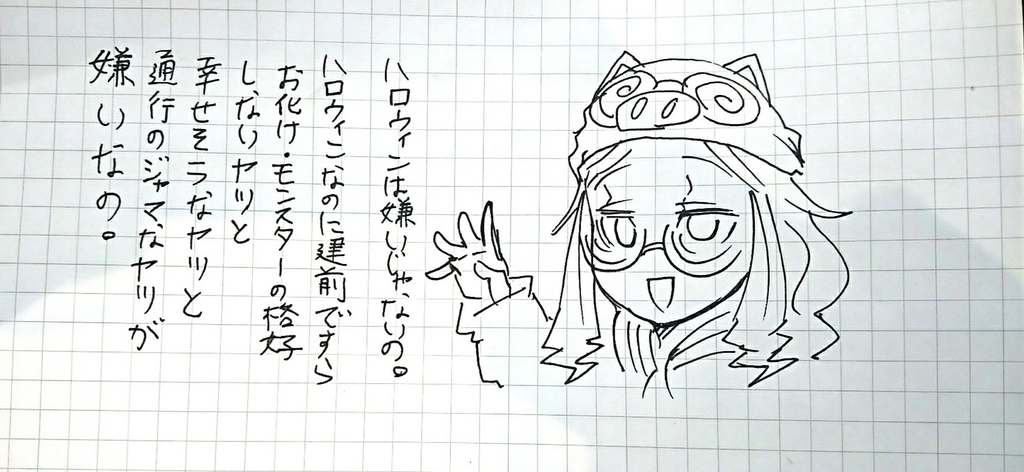 ハロウィンは嫌いじゃないの。
ハロウィンなのに建前ですら
お化け・モンスターの格好
しないヤツと
幸せそうなヤツと
通行のジャマなヤツが
嫌いなの。